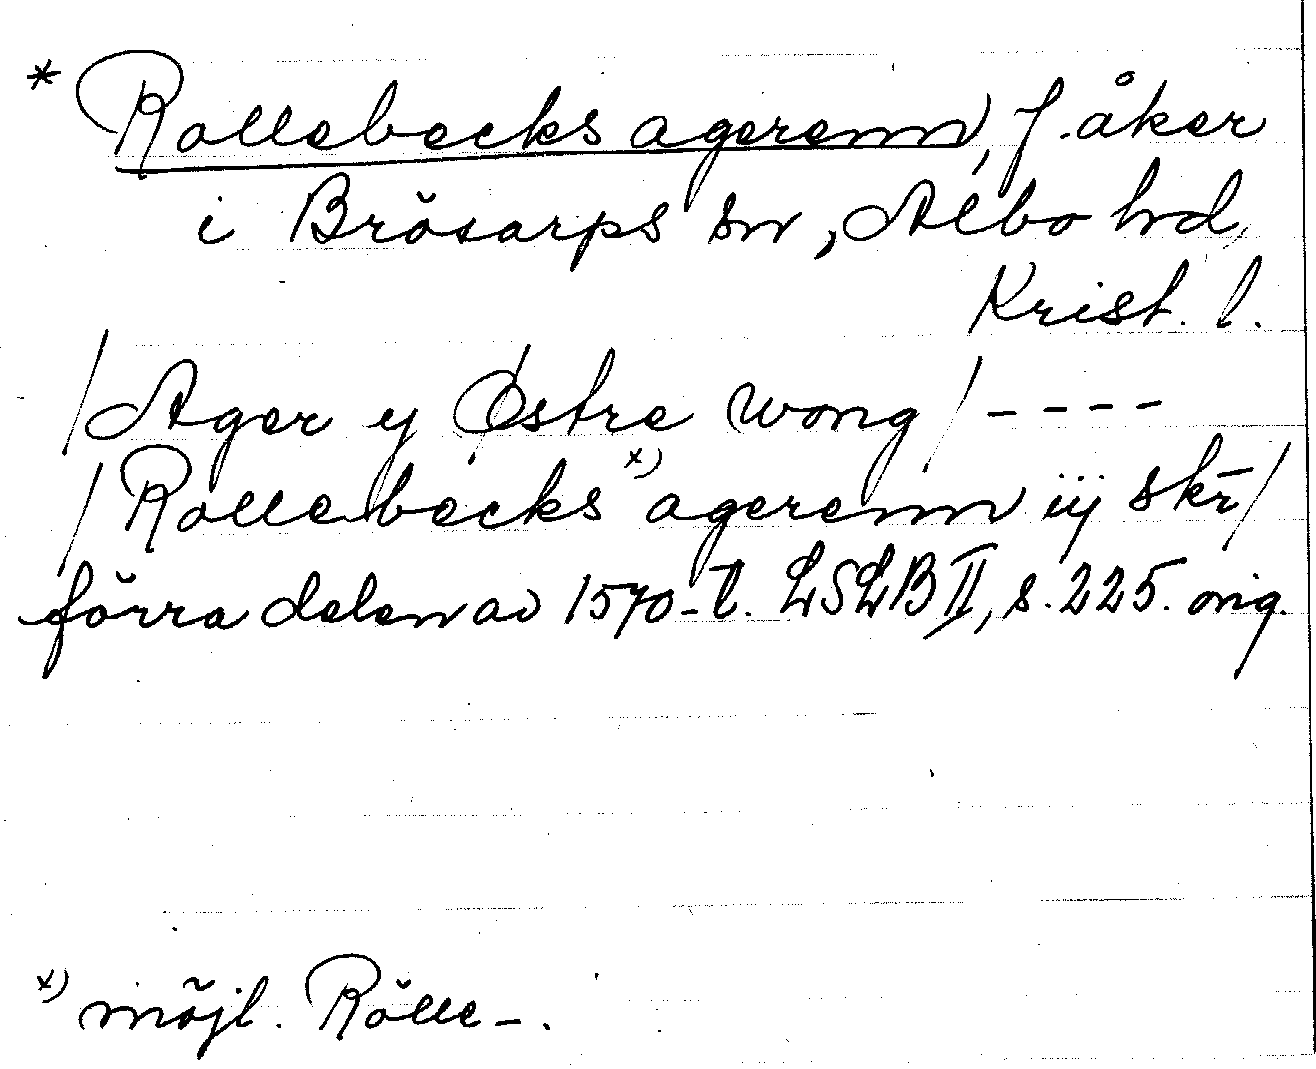 * Rollebecks agerenn, f. åker
i Brösarps sn, Albo hd,
Krist. l.
/Ager y Østre wong/ - - - -
/Rollebecks x) agerenn iij skr̄/
förra delen av 1570-t. LSLB II, s. 225. orig.
x) möjl. Rölle-.